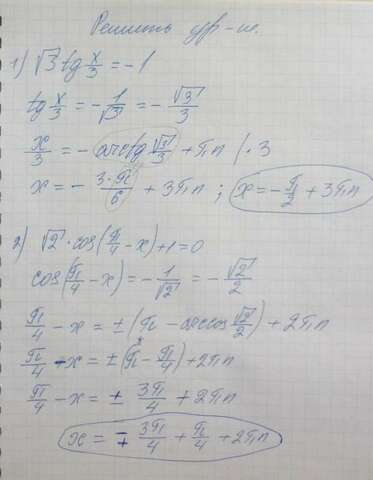 Решить ур-ие.
1) √3 tg x/3 = -1
tg x/3 = - 1/√3 = - √3/3
x/3 = - arctg √3/3 + πn | · 3
x = - 3·π/6 + 3πn ; x = - π/2 + 3πn
2) √2 · cos(π/4 - x) + 1 = 0
cos(π/4 - x) = - 1/√2 = - √2/2
π/4 - x = ± (π - arccos √2/2) + 2πn
π/4 - x = ± (π - π/4) + 2πn
π/4 - x = ± 3π/4 + 2πn
x = ∓ 3π/4 + π/4 + 2πn